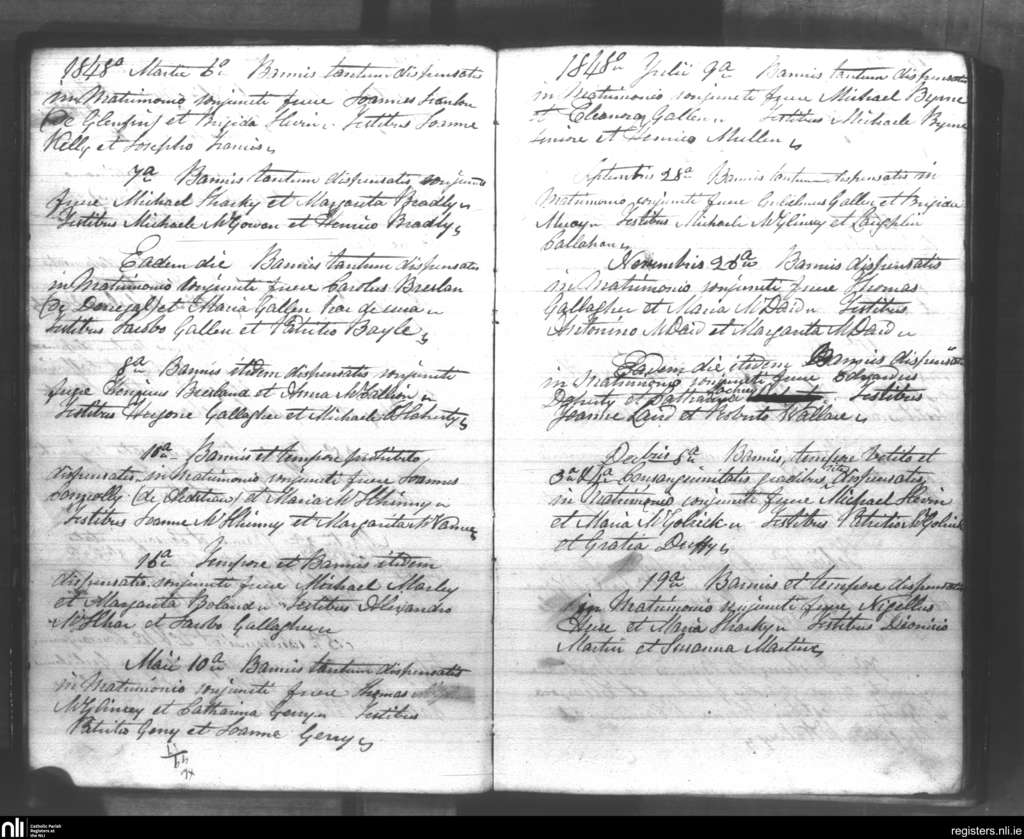 1848º Martii 6º Bannis tantum dispensatis
in Matrimonio conjuncti fuere Joannes Scanlon
(de Glenfin) et Brigida Hevin. Testibus Joanne
Kelly et Josepho
7ª Bannis tantum dispensatis conjuncti
fuere Michael Sharky et Margarita Bradly
Testibus Michaele McGowan et Henrico Bradly
Eadem die Bannis tantum dispensatis
in Matrimonio conjuncti fuere Carolus Breslan
(de Donegal) et Maria Gallen hac de
Testibus Jacobo Gallen et Patritio Boyle
8ª Bannis itidem dispensatis conjuncti
fuere Henricus Breeland et Anna McCallion
Testibus Hugone Gallagher et Michaele
10ª Bannis et tempore prohibito
dispensatis in Matrimonio conjuncti fuere Joannes
Connolly (de) et Maria McIlhinny
Testibus Joanne McIlhinny et Margarita
16ª Tempore et Bannis itidem
dispensatis conjuncti fuere Michael Marley
et Margarita Boland Testibus Alexandro
et Jacobo Gallagher
Maii 10ª Bannis tantum dispensatis
in Matrimonio conjuncti fuere Thomas
McGlincey et Catharina Gerry Testibus
Patritio Gerry et Joanne Gerry
1848º Julii 9ª Bannis tantum dispensatis
in Matrimonio conjuncti fuere Michael Byrne
et Eleanora Gallen Testibus Michaele Byrne
Seniore et Henrico Mullen
Septembris 28ª Bannis tantum dispensatis in
Matrimonio conjuncti fuere Gulielmus Gallen et Brigida
Testibus Michaele McGlincy et Laughlin
Callahan
Novembris 26ª Bannis dispensatis
in Matrimonio conjuncti fuere Thomas
Gallagher et Maria McDaid Testibus
Antonino McDaid et Margarita McDaid
Eadem die itidem Bannis dispensatis
in Matrimonio conjuncti fuere Edvardus
Doherty et Catharina Testibus
Joanne Laird et Roberto Wallace
Decbris 5ª Bannis, tempore vetito et
3ª & 4ª Consanguinitatis gradibus dispensatis
in Matrimonio conjuncti fuere Michael Hevin
et Maria McGolrick Testibus Patritio McGolrick
et Gratia Duffy
19ª Bannis et tempore dispensatis
in Matrimonio conjuncti fuere Nigellus
et Maria Sharky Testibus Dionisio
Martin et Susanna Martin
nli Catholic Parish
Registers at
the NLI
registers.nli.ie